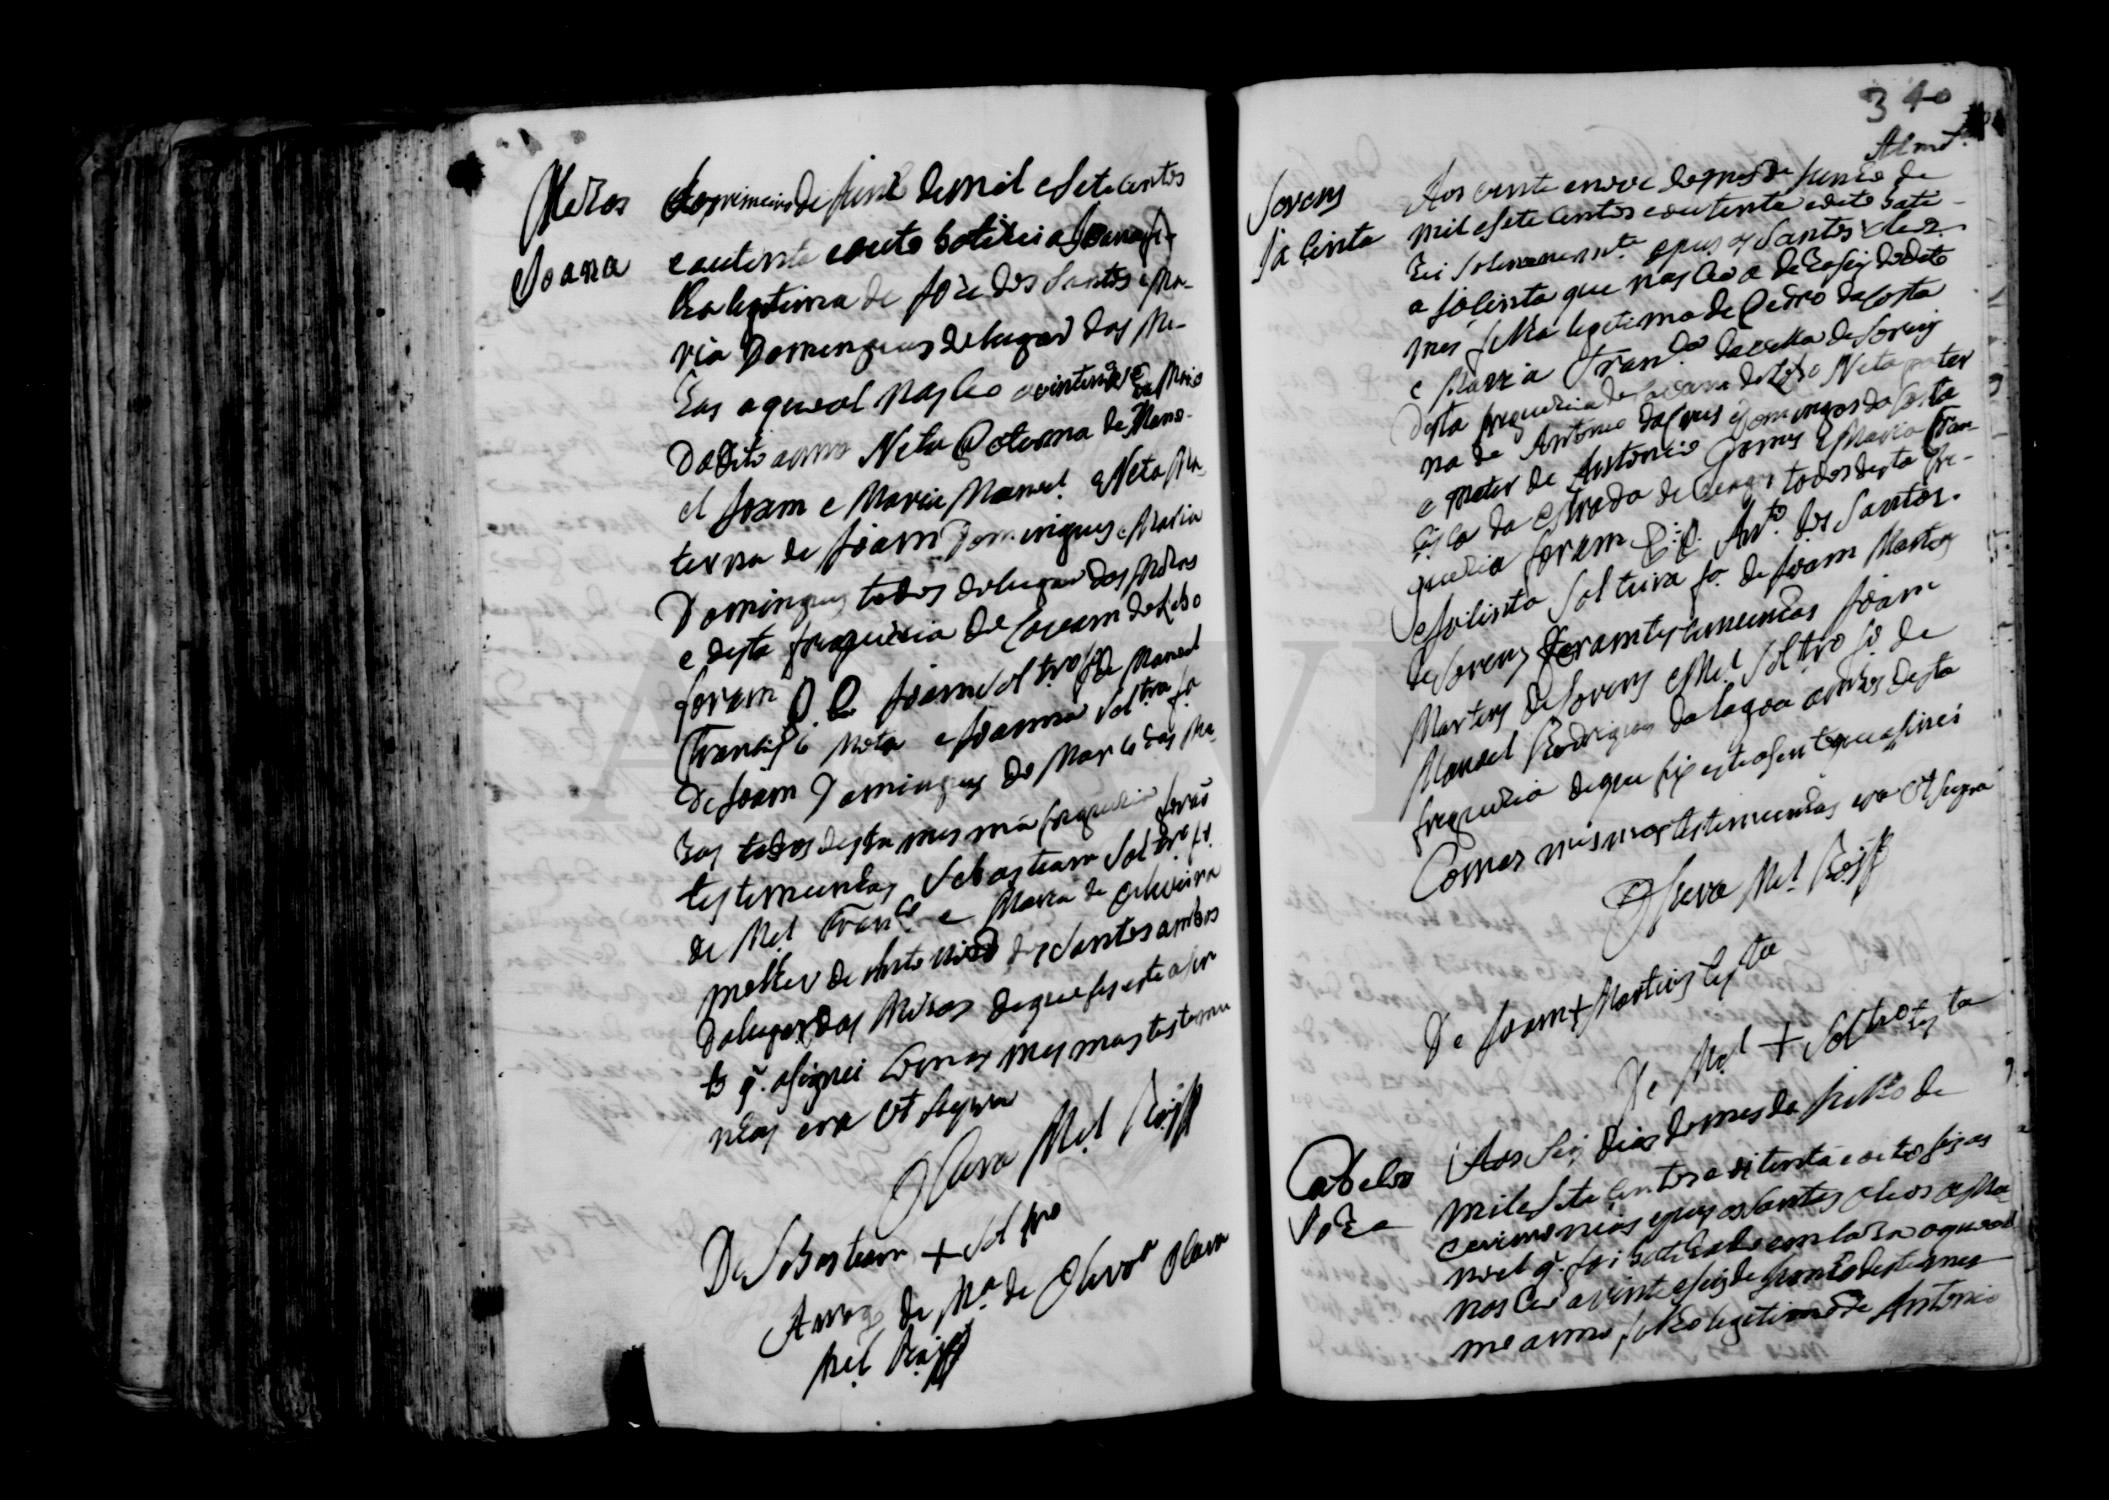 Meras
Joana
Ao primeiro de Junho de mil e Sete centos
e outenta e outo batizei a Joana fi-
lha legitima de Joze dos Santos e Ma-
ria Domingues do lugar das Me-
ras a qual nasceo a vinte de Maio
do dito anno Neta Paterna de Mano-
el Joam e Maria Manoel e Neta Ma-
terna de Joam Domingues e Maria
Domingues todos do lugar das Meras
e desta freguezia de
foram P. P. Joam solt.ro f.o de Manoel
Francisco Mota e Joanna solt.ra f.a
de Joam Domingues do Mar das Me-
ras todos desta mesma freguezia foraõ
testemunhas Sebastiam Solt.ro f.o
de M.el Fran.co e Maria de Oliveira
molher de Antonio dos Santos ambos
do lugar das Meras de que fis este asen-
to q. asignei com as mesmas testemu-
nhas era Ut Supra
O Cura M.el Roiz
De Sebastiam + Solt.ro
A rogo de M.a de Olivr.a o Cura
M.el Roiz
340
Almd.a
Sorens
Jacinta
Aos vinte e nove do mes de Junho de
mil e sete centos e outenta e oito bati-
zei solenemente e pus os Santos oleos
a Jacinta que nasceo a dezaseis do dito
mes filha legitima de Pedro da Costa
e Maria Fran.ca da
desta freguezia de Neta pater
na de Antonio da e Domingas da Costa
e Mater de Antonio Gomes e Maria Fran-
cisca da estrada de todos desta fre-
guezia foram P. P. Ant.o dos Santos
e Jacinta Solteira f.a de Joam Martins
de Sorens foram testemunhas Joam
Martins de Sorens e M.el Solt.ro f.o de
Manoel Rodrigues da lagoa ambos desta
freguezia de que fiz este asento que asinei
Com as mesmas testemunhas era Ut Supra
O Cura M.el Roiz
De Joam + Martins testa
De M.el + Solt.ro testa
Cabelos
Aos seis dias do mes de Julho de
mil e Sete Centos e oitenta e oito fiz as
ceremonias e pus os Santos oleos a Ma-
noel q. foi batizado em caza o qual
nasceo a vinte e seis de Junho deste mes-
mo anno filho legitimo de Antonio